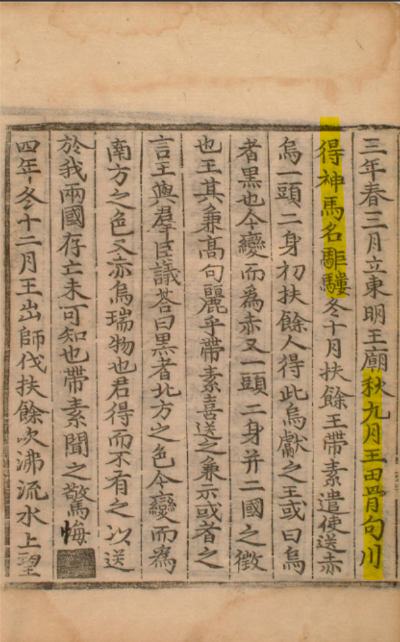 三年春三月立東明王廟秋九月王田骨句川
得神馬名駏䮫冬十月扶餘王帶素遣使送赤
烏一頭二身初扶餘人得此烏獻之王或曰烏
者黑也今變而爲赤又一頭二身并二國之徵
也王其兼高句麗乎帶素喜送之兼示或者之
言王與羣臣議荅曰黑者北方之色今變而爲
南方之色又赤烏瑞物也君得而不有之以送
於我兩國存亡未可知也帶素聞之驚悔
四年冬十二月王出師伐扶餘次沸流水上望